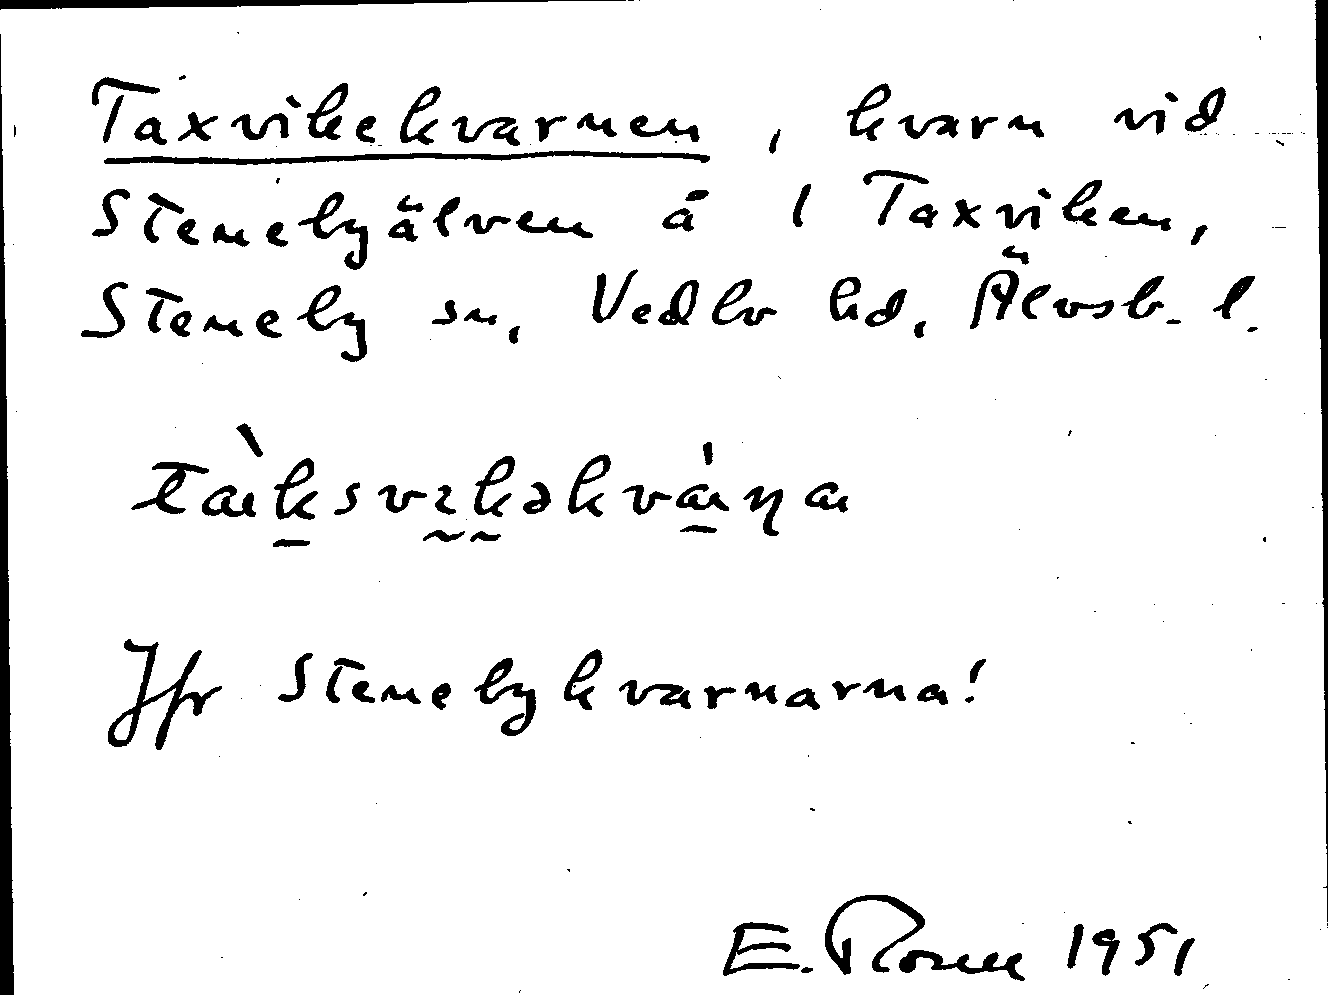 Taxvikekvarnen, kvarn vid
Stenebyälven å 1 Taxviken,
Steneby sn, Vedbo hd, Älvsb. l.
Jfr Stenebykvarnarna!
E. 1951